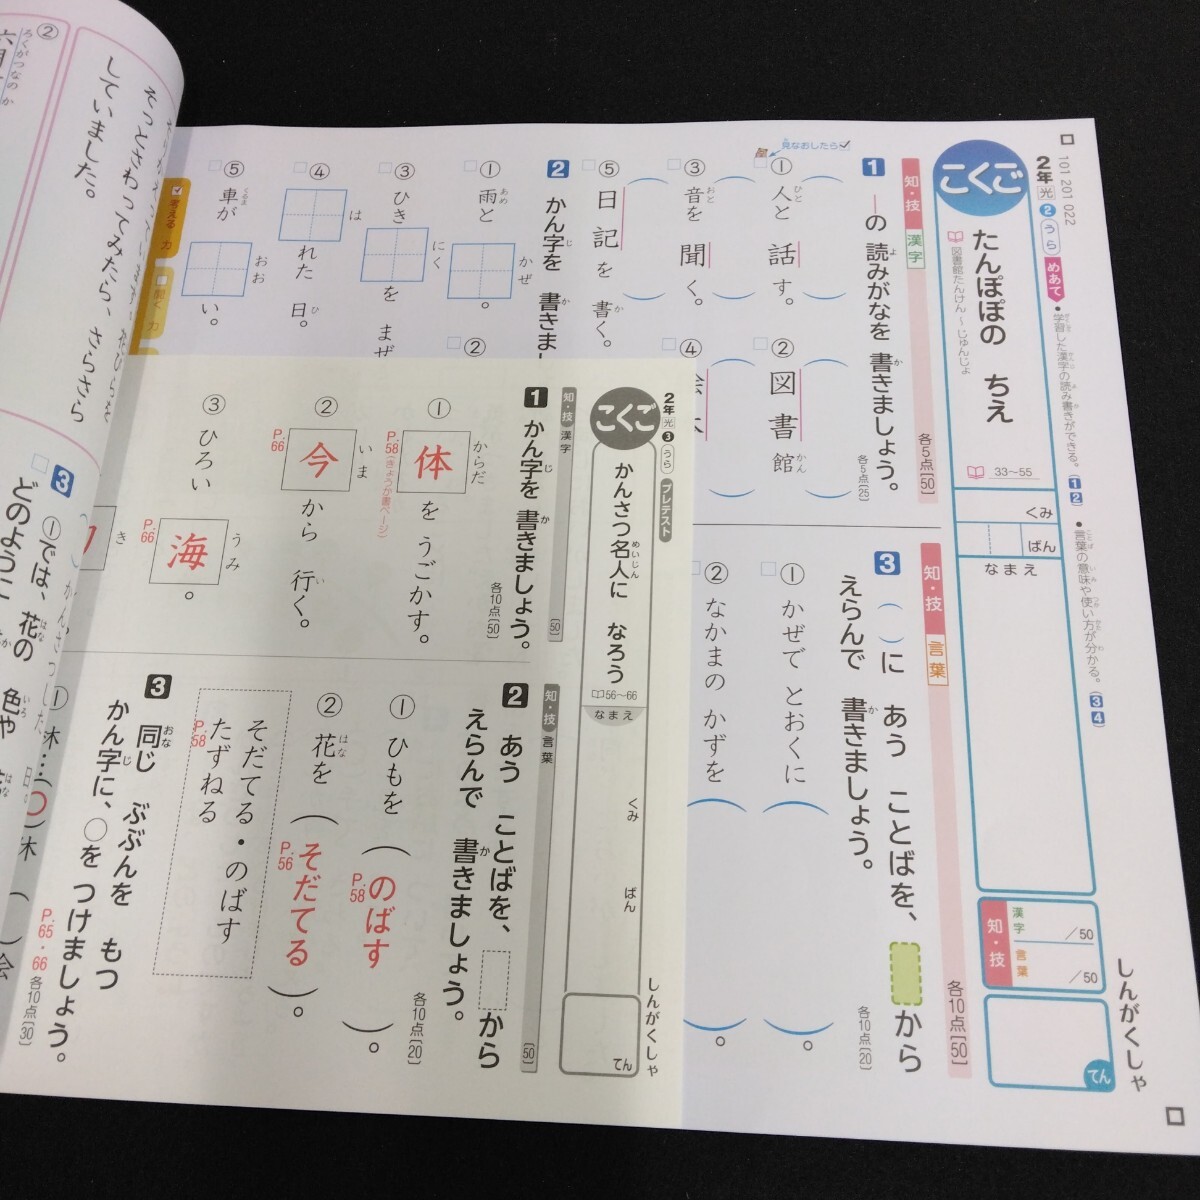 101 201 022
2年 光 2 うら
めあて
・学習した漢字の読み書きができる。(1 2)
・言葉の意味や使い方が分かる。(3 4)
こくご
たんぽぽの ちえ
図書館たんけん～じゅんじょ
33～55
くみ
ばん
なまえ
知・技
漢字 /50
言葉 /50
てん
しんがくしゃ
知・技 漢字
各5点[50]
1 ―の 読みがなを 書きましょう。
各5点[25]
見なおしたら
① 人と 話す。
② 図書館
③ 音を 聞く。
④
⑤ 日記を 書く。
2 かん字を 書きまし
① 雨と かぜ。
②
③ ひき にくを まぜ
④ はれた 日。
⑤ 車が おおい。
知・技 言葉
各10点[50]
3 ( )に あう ことばを、 から
えらんで 書きましょう。
各10点[20]
① かぜで とおくに
② なかまの かずを
2年 光 3 うら プレテスト
こくご
かんさつ名人に なろう
56～66
なまえ
くみ
ばん
てん
しんがくしゃ
知・技 漢字
[50]
1 かん字を 書きましょう。
各10点[50]
① 体を うごかす。
からだ
P.58(きょうか書ページ)
② 今から 行く。
いま
P.66
③ ひろい 海。
うみ
P.66
き
知・技 言葉
[50]
2 あう ことばを、 から
えらんで 書きましょう。
各10点[20]
① ひもを (のばす)。
P.58
② 花を (そだてる)。
P.56
そだてる・のばす
たずねる
P.58
3 同じ ぶぶんを もつ
かん字に、○を つけましょう。
P.65・66
各10点[30]
そっとさわってみたら、さらさら
していました。
②
ろくがつなのか
3 ①では、花の 色や
どのように